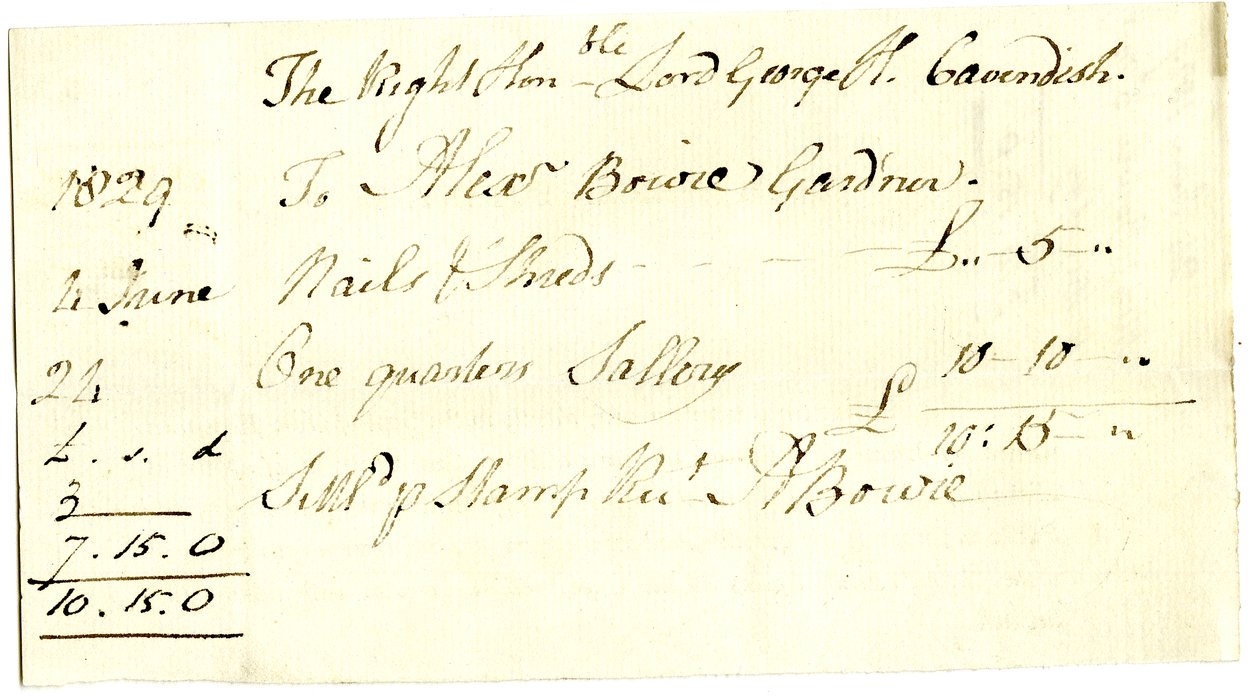 The Right Hon^ble Lord George H. Cavendish.
1829 To Alex^r Bowie Gardner.
4 June Nails & Shreds - - - - £ " - 5 - "
24 One quarters Sallory 10 - 10 - "
£ 10 : 15 - "
£ . s. d
Settl^d p Stamp Re^t A Bowie
3
7 . 15 . 0
10 . 15 . 0